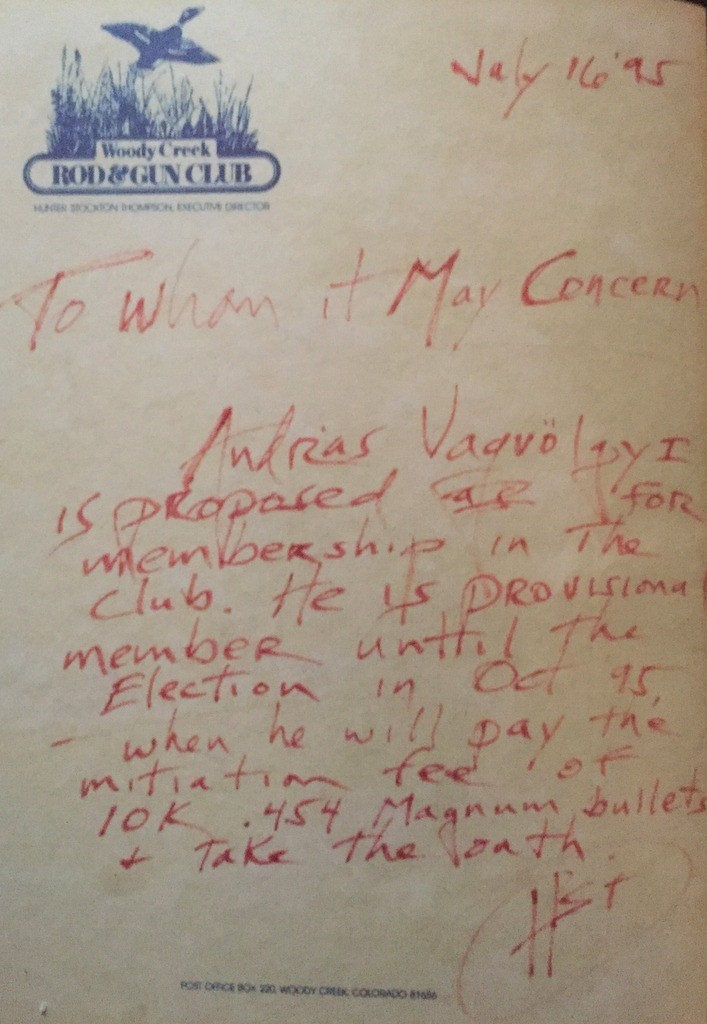 July 16 '95
Woody Creek
ROD & GUN CLUB
HUNTER STOCKTON THOMPSON, EXECUTIVE DIRECTOR
To Whom it May Concern
Andrias Vagvölgyi
is proposed as for
membership in the
Club. He is provisional
member unttil the
Election in Oct 95,
- when he will pay the
initiation fee of
10K .454 Magnum bullets
+ take the oath.
HST
POST OFFICE BOX 220, WOODY CREEK, COLORADO 81656